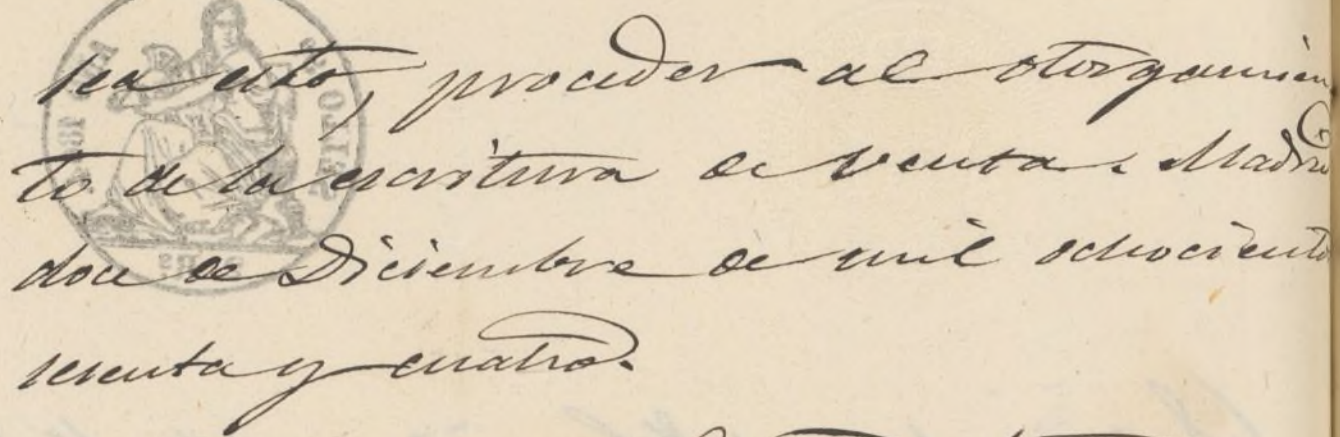 sea esto, proceder al otorgamien
to de la escritura de venta. Madrid
doce de Diciembre de mil ochociento
sesenta y cuatro.